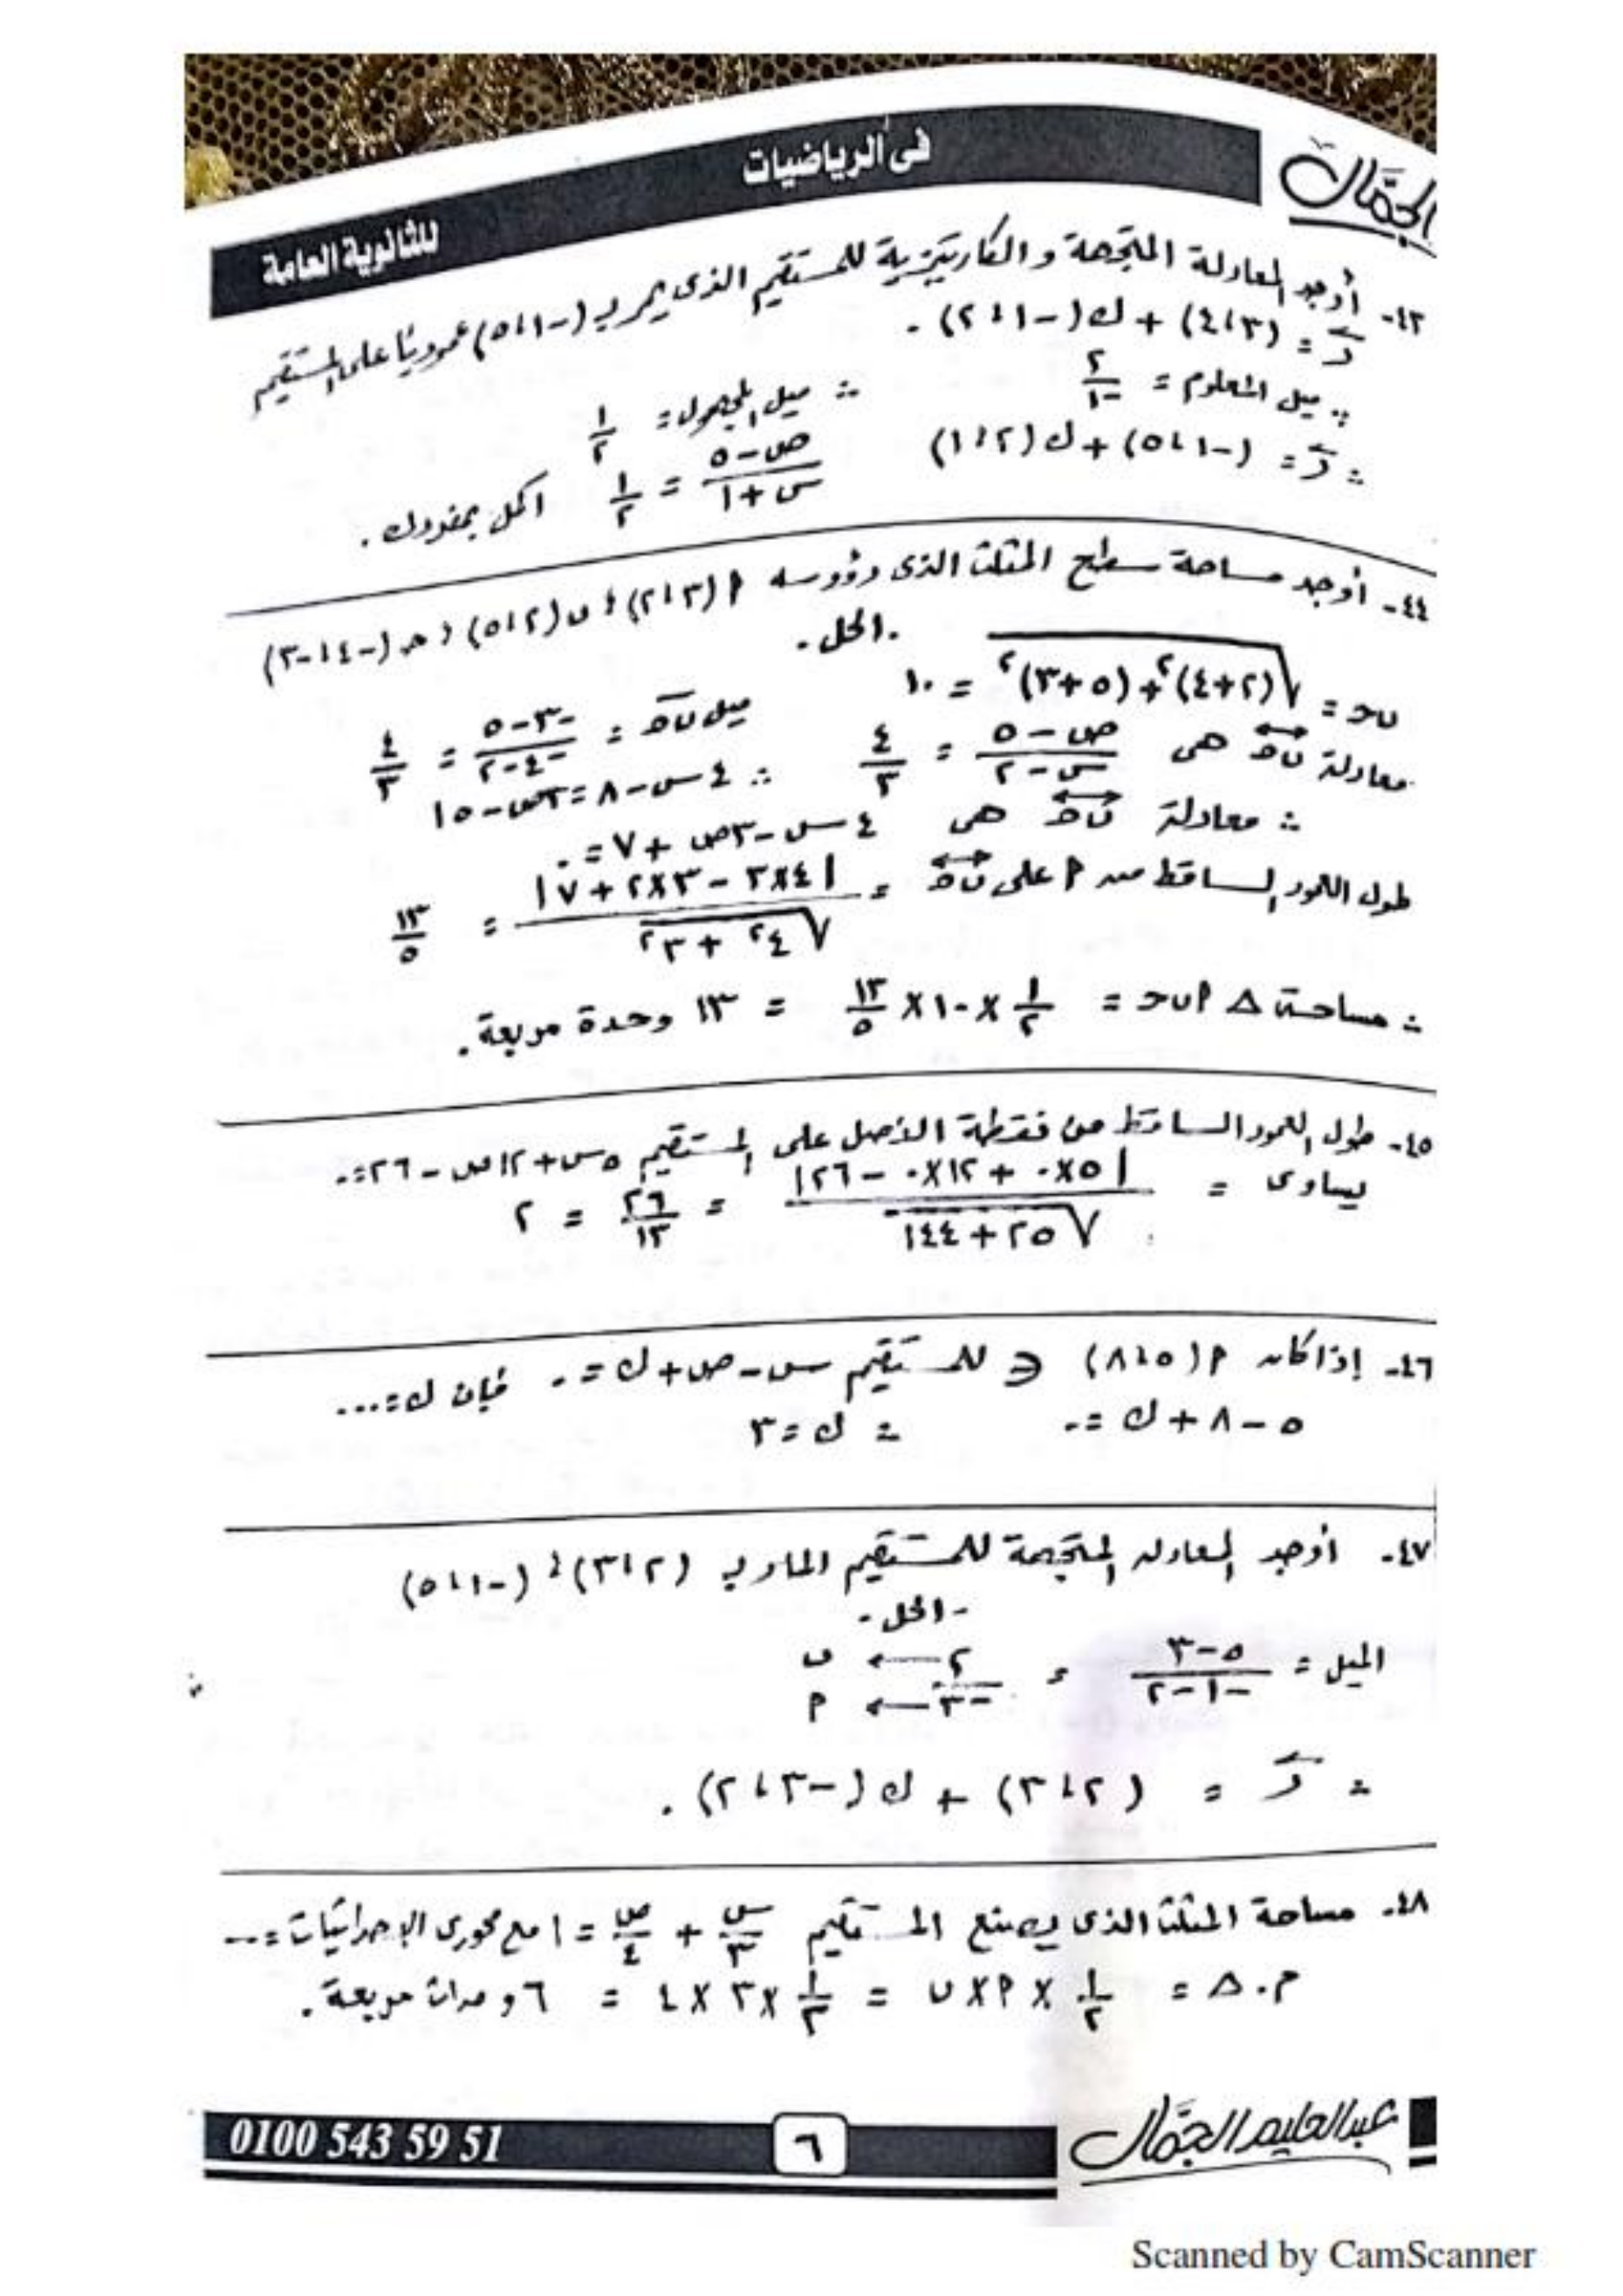 الجمّال
فى الرياضيات
للثانوية العامة
٤٣- أوجد المعادلة المتجهة والكارتيزية للمستقيم الذى يمر بـ (-١، ٥) عموديًا على المستقيم
ر = (٣، ٤) + ك (-١، ٢) .
∵ ميل المعلوم = ٢/-١ ∴ ميل المجهول = ١/٢
∴ ر = (-١، ٥) + ك (٢، ١) (ص - ٥)/(س + ١) = ١/٢ اكمل بمفردك .
٤٤- أوجد مساحة سطح المثلث الذى رؤوسه P (٣، ٢) ، ب (٢، ٥) ، حـ (-٤، -٣)
. الحل .
ب حـ = √((٢+٤)² + (٥+٣)²) = ١٠
ميل ب حـ = (-٣-٥)/(-٤-٢) = ٤/٣
معادلة ب حـ هى (ص - ٥)/(س - ٢) = ٤/٣ ∴ ٤س - ٨ = ٣ص - ١٥
∴ معادلة ب حـ هى ٤س - ٣ص + ٧ = ٠
طول العمود الساقط من P على ب حـ = |٤×٣ - ٣×٢ + ٧| / √(٤² + ٣²) = ١٣/٥
∴ مساحة Δ P ب حـ = ١/٢ × ١٠ × ١٣/٥ = ١٣ وحدة مربعة .
٤٥- طول العمود الساقط من نقطة الأصل على المستقيم ٥س + ١٢ص - ٢٦ = ٠
يساوى = |٥×٠ + ١٢×٠ - ٢٦| / √(٢٥ + ١٤٤) = ٢٦/١٣ = ٢
٤٦- إذا كان P (٥، ٨) ∈ للمستقيم س - ص + ك = ٠ فإن ك = ...
٥ - ٨ + ك = ٠ ∴ ك = ٣
٤٧- أوجد المعادله المتجهة للمستقيم المار بـ (٢، ٣) ، (-١، ٥)
- الحل -
الميل = (٥-٣)/(-١-٢) = ٢ ← ب / -٣ ← P
∴ ر = (٢، ٣) + ك (-٣، ٢) .
٤٨- مساحة المثلث الذى يصنع المستقيم س/٣ + ص/٤ = ١ مع محورى الإحداثيات = ...
م . Δ = ١/٢ × P × ب = ١/٢ × ٣ × ٤ = ٦ وحدات مربعة .
عبدالحليم الجمّال
٦
0100 543 59 51
Scanned by CamScanner